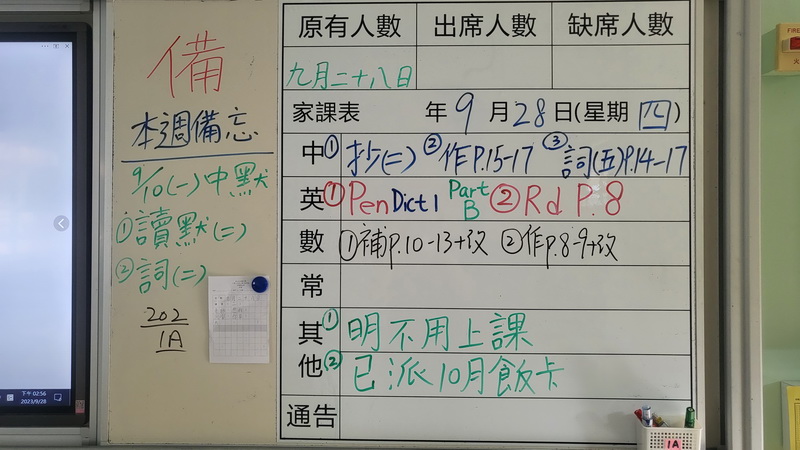 備
本週備忘
9/10(一)中默
①讀默(二)
②詞(二)
202
1A
下午 02:56
2023/9/28
原有人數 出席人數 缺席人數
九月二十八日
家課表 年9月28日(星期四)
中 ①抄(二) ②作P.15-17 ③詞(五)P.14-17
英 ①Pen Dict 1 Part B ②Rd P.8
數 ①補p.10-13+改 ②作p.8-9+改
常
其他 ①明不用上課
②已派10月飯卡
通告
1A
FIRE
火